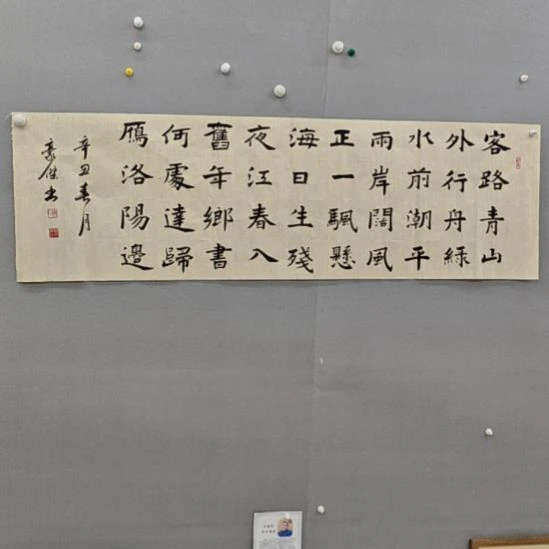 客路青山
外行舟綠
水前潮平
兩岸闊風
正一颿懸
海日生殘
夜江春入
舊年鄉書
何處達歸
鴈洛陽邊
辛丑春月
豪傑書